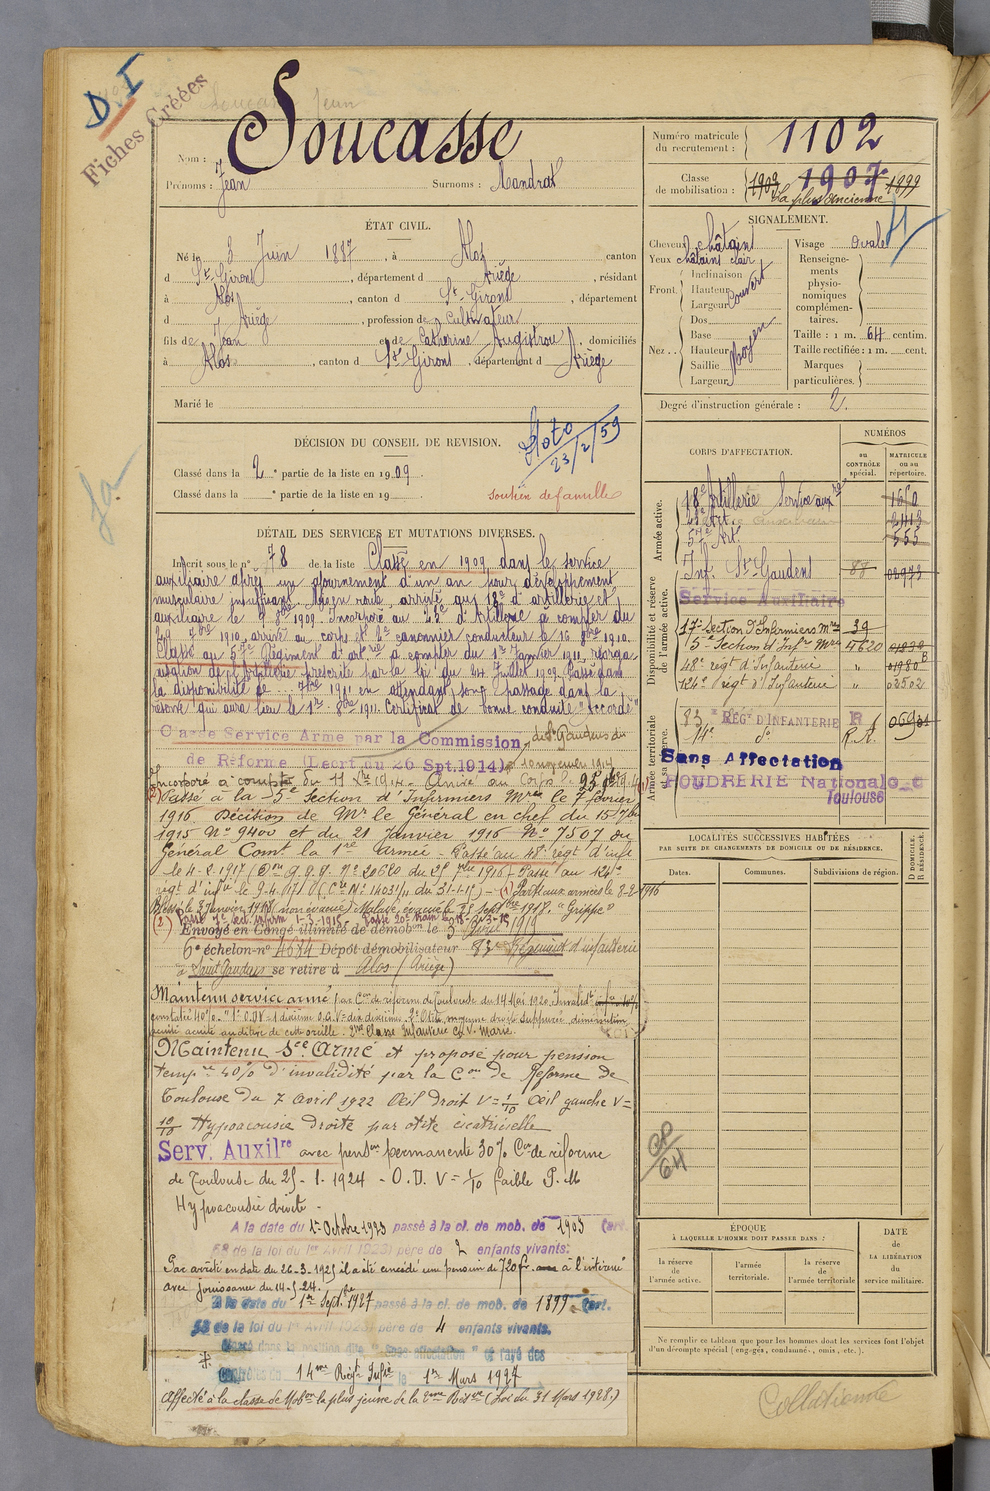 D. I
Fiches Créées
Nom : Soucasse
Prénoms : Jean Surnoms : Mandrat
Numéro matricule du recrutement : 1102
Classe de mobilisation : 1909 1907 1899
La plus ancienne
ÉTAT CIVIL.
Né le 3 Juin 1887, à Alos canton
d St-Girons, département d Ariège, résidant
à Alos, canton d St-Girons, département
d Ariège, profession de Cultivateur
fils de Jean et de Catherine Augistrou, domiciliés
à Alos, canton d St-Girons, département d Ariège
Marié le
SIGNALEMENT.
Cheveux châtains
Yeux châtains clair
Front. Inclinaison
Hauteur Couvert
Largeur
Nez.. Dos
Base
Hauteur Moyen
Saillie
Largeur
Visage ovale
Renseignements physionomiques complémentaires.
Taille : 1 m. 64 centim.
Taille rectifiée : 1 m. cent.
Marques particulières.
Degré d'instruction générale : 2.
DÉCISION DU CONSEIL DE REVISION.
Classé dans la 2e partie de la liste en 1909.
Classé dans la e partie de la liste en 19
23/2/59
soutien de famille
DÉTAIL DES SERVICES ET MUTATIONS DIVERSES.
Inscrit sous le n° 78 de la liste Classé en 1909 dans le service
auxiliaire après un ajournement d'un an pour développement
musculaire insuffisant. Mis en route, arrivé au 18e d'artillerie et
auxiliaire le 9 8bre 1909. Incorporé au 23e d'Artillerie à compter du
29 7bre 1910, arrivé au corps et 2e canonnier conducteur le 16 8bre 1910.
Classé au 57e Régiment d'artrie à compter du 1er Janvier 1911, réorga-
nisation de l'artillerie prescrite par la loi du 24 Juillet 1909. Passé dans
la disponibilité le 7bre 1911 en attendant son passage dans la
réserve qui aura lieu le 1er 8bre 1911. Certificat de bonne conduite "accordé"
Classé Service Armé par la Commission de St Gaudens du
de Réforme (Décret du 26 Sept. 1914) 10 novembre 1914
Incorporé à compter du 11 Xbre 1914. Arrivé au Corps le
Passé à la 5e Section d'Infirmiers Mres le 7 février
1916. Décision de Mr le Général en chef du 15 Xbre
1915 N° 9400 et du 21 Janvier 1916 N° 7507 du
Général Comt la 1re Armée - Passé au 48e régt d'infie
le 4-2-1917 (Don G.Q.G. n° 20620 du 25 7bre 1916) - Passé au 124e
régt d'infie le 9-4-1917 - (1) Parti aux armées le 8-2-1916
Blessé le 3 janvier 1918 (non évacué) Malade, évacué le 25 Septbre 1918. "Grippe"
Envoyé en Congé illimité de démobon le 5 Avril 1919
6e échelon - n° 4684 Dépôt démobilisateur 83e Régiment d'infanterie
à Saint Gaudens se retire à Alos (Ariège)
Maintenu service armé par Con de réforme de Toulouse du 14 Mai 1920. Invalidité
constatée 40% - 1° O.D V=1 dixième O.G. V=dix dixièmes. 2° Otite moyenne droite suppurée, diminution
acuité auditive de cette oreille. 2me Classe Infanterie
Maintenu Sce Armé et proposé pour pension
tempre 40% d'invalidité par la Con de Réforme de
Toulouse du 7 Avril 1922 Oeil droit V = 1/10 Oeil gauche V =
10/10 Hypoacousie droite par otite cicatricielle
Serv. Auxilre avec pension permanente 30% Con de réforme
de Toulouse du 25-1-1924 - O.D. V = 1/10 faible
Hypoacousie droite -
A la date du 1er Octobre 1923 passé à la cl. de mob. de 1903 (art.
58 de la loi du 1er Avril 1923) père de 2 enfants vivants.
Par arrêté en date du 26-3-1925 il a été concédé une pension de 720 fr. à l'intéressé
avec jouissance du 14-5-24.
A la date du 1er Septbre 1927 passé à la cl. de mob. de 1899 (art.
58 de la loi du 1er Avril 1923) père de 4 enfants vivants.
Classé dans la position dite "Sans affectation" et rayé des
contrôles du 14me Régt Infie le 1er Mars 1927
Affecté à la classe de Mobon la plus jeune de la 2eme Reserve (Loi du 31 Mars 1928)
CORPS D'AFFECTATION.
NUMÉROS
au CONTRÔLE spécial.
MATRICULE ou au répertoire.
Armée active.
18e Artillerie Service auxre 1660
23e Artie auxiliaire 2413
57e Art. 555
Disponibilité et réserve de l'armée active.
Inf. St-Gaudens 87 08973
Service Auxiliaire
17e Section d'Infirmiers Mres 39
5e Section d'Infrs Mres 4620 01830
48e régt d'Infanterie " 01980
124e régt d'Infanterie " 02502
Armée territoriale et sa réserve.
83 RÉGt D'INFANTERIE R
14e do R.A.
Sans Affectation
POUDRERIE Nationale
Toulouse
LOCALITÉS SUCCESSIVES HABITÉES
PAR SUITE DE CHANGEMENTS DE DOMICILE OU DE RÉSIDENCE.
Dates. Communes. Subdivisions de région.
D DOMICILE. R RÉSIDENCE.
GP
64
ÉPOQUE
À LAQUELLE L'HOMME DOIT PASSER DANS :
la réserve de l'armée active.
l'armée territoriale.
la réserve de l'armée territoriale
DATE de LA LIBÉRATION du service militaire.
Ne remplir ce tableau que pour les hommes dont les services font l'objet
d'un décompte spécial (engagés, condamnés, omis, etc.).
Collationné